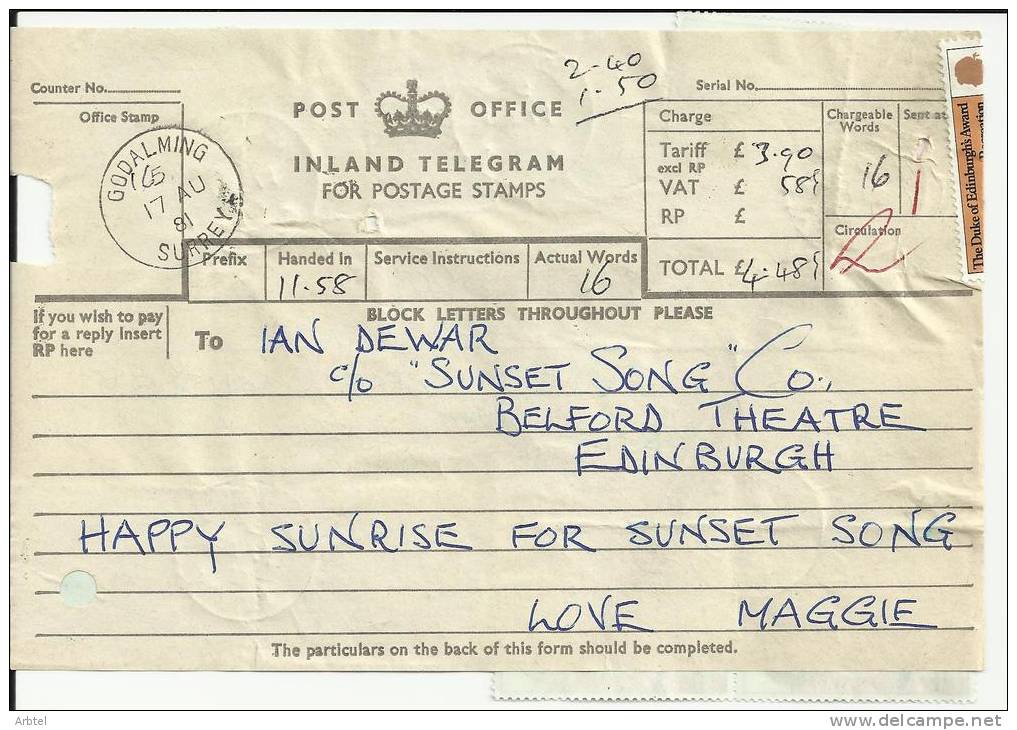 2-40
1.50
Counter No.
Serial No.
Office Stamp
POST OFFICE
INLAND TELEGRAM
FOR POSTAGE STAMPS
GODALMING
17 AU
81
SURREY
Charge
Tariff £ 3.90
excl RP
VAT £ 58½
RP £
TOTAL £ 4.48½
Chargeable Words
16
Sent at
Circulation
The Duke of Edinburgh's Award
Prefix
Handed In
11.58
Service Instructions
Actual Words
16
If you wish to pay
for a reply insert
RP here
BLOCK LETTERS THROUGHOUT PLEASE
To IAN DEWAR
c/o "SUNSET SONG" Co.,
BELFORD THEATRE
EDINBURGH
HAPPY SUNRISE FOR SUNSET SONG
LOVE MAGGIE
The particulars on the back of this form should be completed.
Arbtel
www.delcampe.net